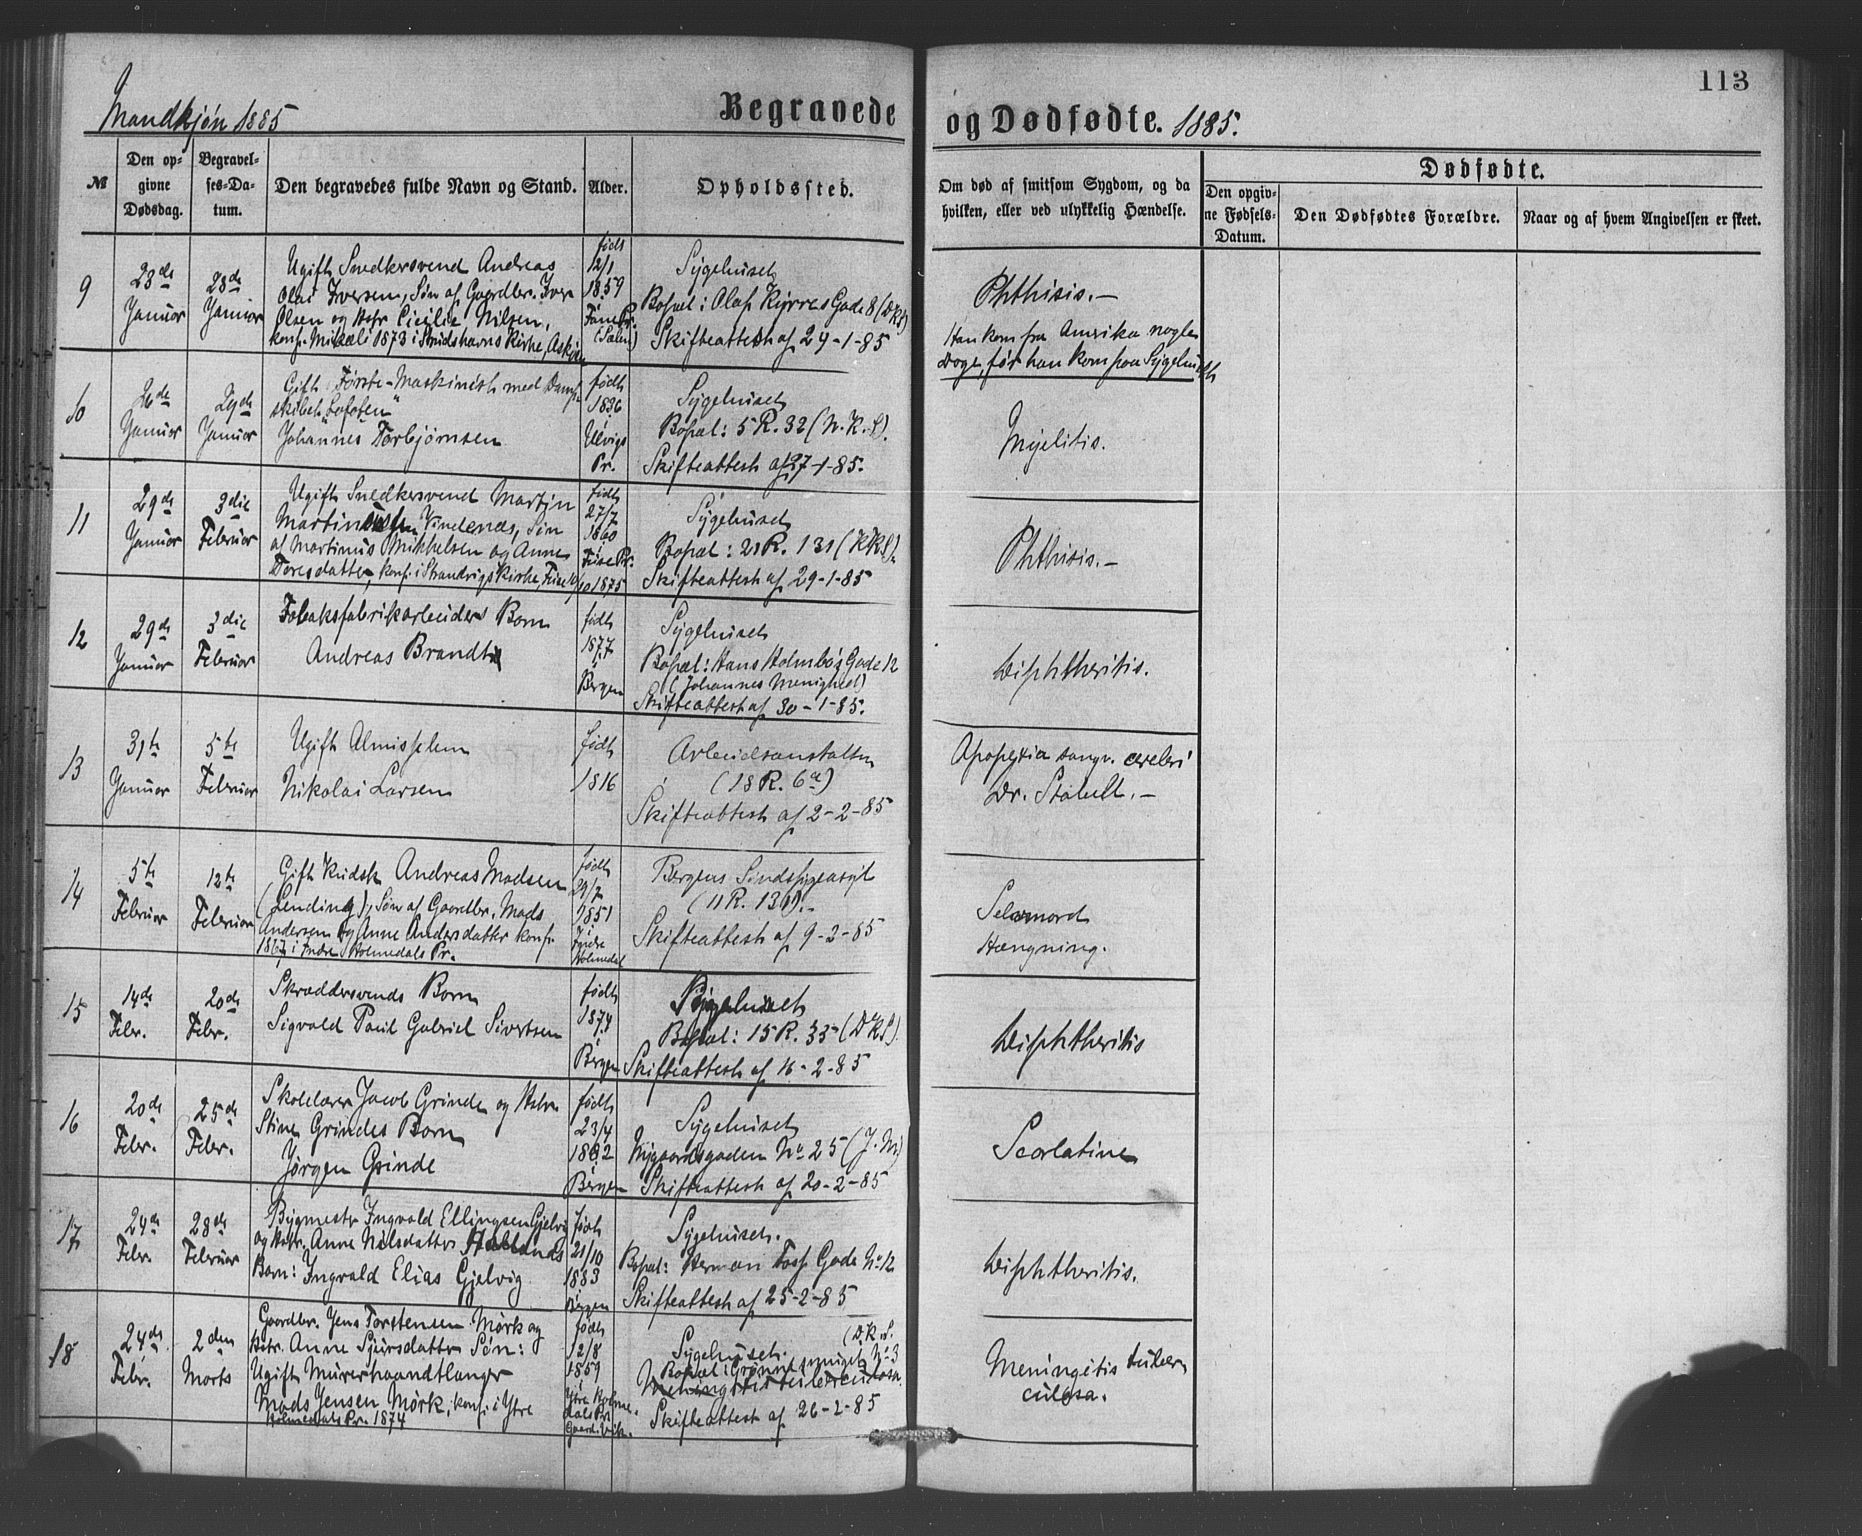 Mandkjøn 1885
Begravede
og Dødfødte. 1885.
113
№
Den op-
givne
Dødsdag.
Begravel-
ses-Da-
tum.
Den begravedes fulde Navn og Stand.
Alder.
Opholdssted.
Om død af smitsom Sygdom, og da
hvilken, eller ved ulykkelig Hændelse.
Dødfødte.
Den opgiv-
ne Fødsels-
Datum.
Den Dødfødtes Forældre.
Naar og af hvem Angivelsen er skeet.
9
23de
Januar
28de
Januar
Ugift Snedkersvend Andreas
Olai Iversen, Søn af Gaardbr. Iver
Olsen og Hstr Cicilie Nilsen,
konf. Mikaeli 1873 i Strudshavns Kirke, Askøen
født
12/1
1859
Fane Pr.
Sygehuset
Bopæl: Olaf Kyrres Gade 8 (DKS)
Skifteattest af 29-1-85
Phthisis.—
Han kom fra Amerika nogle
Dage, før han kom paa Sygehuset
10
26de
Januar
29de
Januar
Gift Første-Maskinist med Damp-
skibet "Lofoten"
Johannes Torbjørnsen
født
1836
i
Ulvigs
Pr.
Sygehuset
Bopæl: 5 R. 32 (N.K.S).
Skifteattest af 27-1-85.
Myelitis.
11
29de
Januar
3die
Februar
Ugift Snedkersvend Martin
Vindenæs, Søn
af Martinus Mikkelsen og Anne
Toresdatter, konf. i Strandvigs Kirke, Fuse 10/10 1875
født
27/7
1860
i
Fuse Pr.
Sygehuset
Bopæl: 21 R. 131 (KKS).
Skifteattest af 29-1-85
Phthisis.—
12
29de
Januar
3die
Februar
Tobaksfabrikarbeiders Barn
Andreas Brandt
født
1877
i
Bergen
Sygehuset
Bopæl: Hans Holmboes Gade 12
(Johannes Menighed)
Skifteattest af 30-1-85.
Diphtheritis.
13
31te
Januar
5te
Februar
Ugift Almisselem
Nikolai Larsen
født
1816
Arbeidsanstalten
(18 R. 6a)
Skifteattest af 2-2-85
Apoplexia sangv. cerebri
Dr. Stabell.—
14
5te
Februar
12te
Februar
Gift Kudsk Andreas Madsen
(Lending), Søn af Gaardbr. Mads
Andersen og Anne Andersdatter konf.
1867 i Indre Holmedals Pr.
født
29/7
1851
i
Indre
Holmedal
Bergens Sindssygeasyl
(11 R. 131).-
Skifteattest af 9-2-85
Selvmord
Hængning.
15
14de
Febr.
20de
Febr.
Skræddersvends Barn
Sigvald Paul Gabriel Sivertsen
født
1874
i
Bergen
Sygehuset
Bopæl: 15 R. 35 (DKS).
Skifteattest af 16-2-85
Diphtheritis
16
20de
Febr.
25de
Febr.
Skolelærer Jacob Grinde og Hstr
Stine Grindes Barn
Jørgen Grinde
født
23/4
1882
i
Bergen
Sygehuset
Nygaardsgaden No 25 (J.M)
Skifteattest af 20-2-85
Scarlatina
17
24de
Febr.
28de
Februar
Bygmestr Ingvald Ellingsen Gjelvig
og Hstr. Anne Nilsdatter Hallands
Barn: Ingvald Elias Gjelvig
født
21/10
1883
i
Bergen
Sygehuset.
Bopæl: Herman Foss Gade No 12
Skifteattest af 25-2-85
Diphtheritis.
18
24de
Febr.
2den
Marts
Gaardbr. Jens Torstensen Mørk og
Hstr. Anne Sjursdatters Søn:
Ugift Murerhaandtlanger
Mads Jensen Mørk, konf. i Ytre
Holmedals Pr. 1874
født
12/8
1859
i
Ytre Holme-
dals Pr.
Gaard. Vik.
(D.K.S.
Sygehuset.
Bopæl i Grønnesmuget No 3
Meningitis tuberculosa.
Skifteattest af 26-2-85
Meningitis tuber-
culosa.